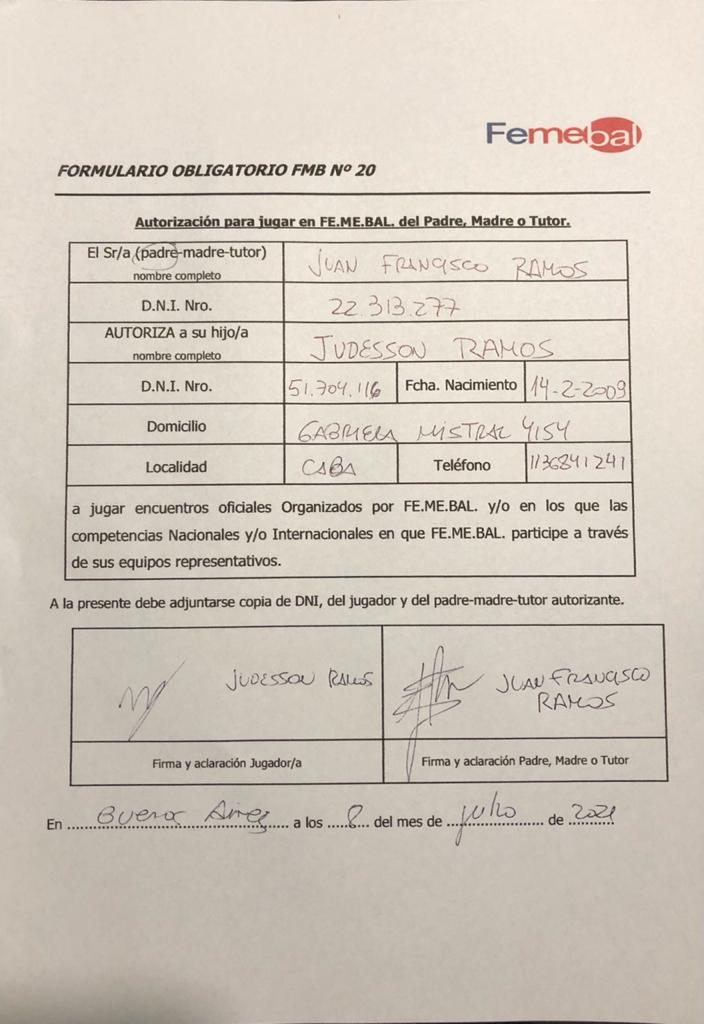 Femebal
FORMULARIO OBLIGATORIO FMB Nº 20
Autorización para jugar en FE.ME.BAL. del Padre, Madre o Tutor.
El Sr/a (padre-madre-tutor) JUAN FRANCISCO RAMOS
nombre completo
D.N.I. Nro. 22.313.277
AUTORIZA a su hijo/a JUDESSON RAMOS
nombre completo
D.N.I. Nro. 51.704.116 Fcha. Nacimiento 14-2-2009
Domicilio GABRIELA MISTRAL 4154
Localidad CABA Teléfono 1136841241
a jugar encuentros oficiales Organizados por FE.ME.BAL. y/o en los que las
competencias Nacionales y/o Internacionales en que FE.ME.BAL. participe a través
de sus equipos representativos.
A la presente debe adjuntarse copia de DNI, del jugador y del padre-madre-tutor autorizante.
JUDESSON RAMOS JUAN FRANCISCO
RAMOS
Firma y aclaración Jugador/a Firma y aclaración Padre, Madre o Tutor
En Buenos Aires a los 8 del mes de julio de 2021